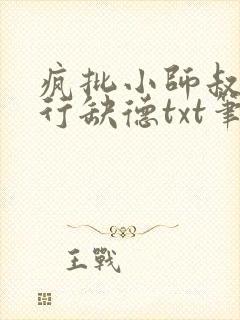 疯批小师叔
行缺德txt笔
王戰